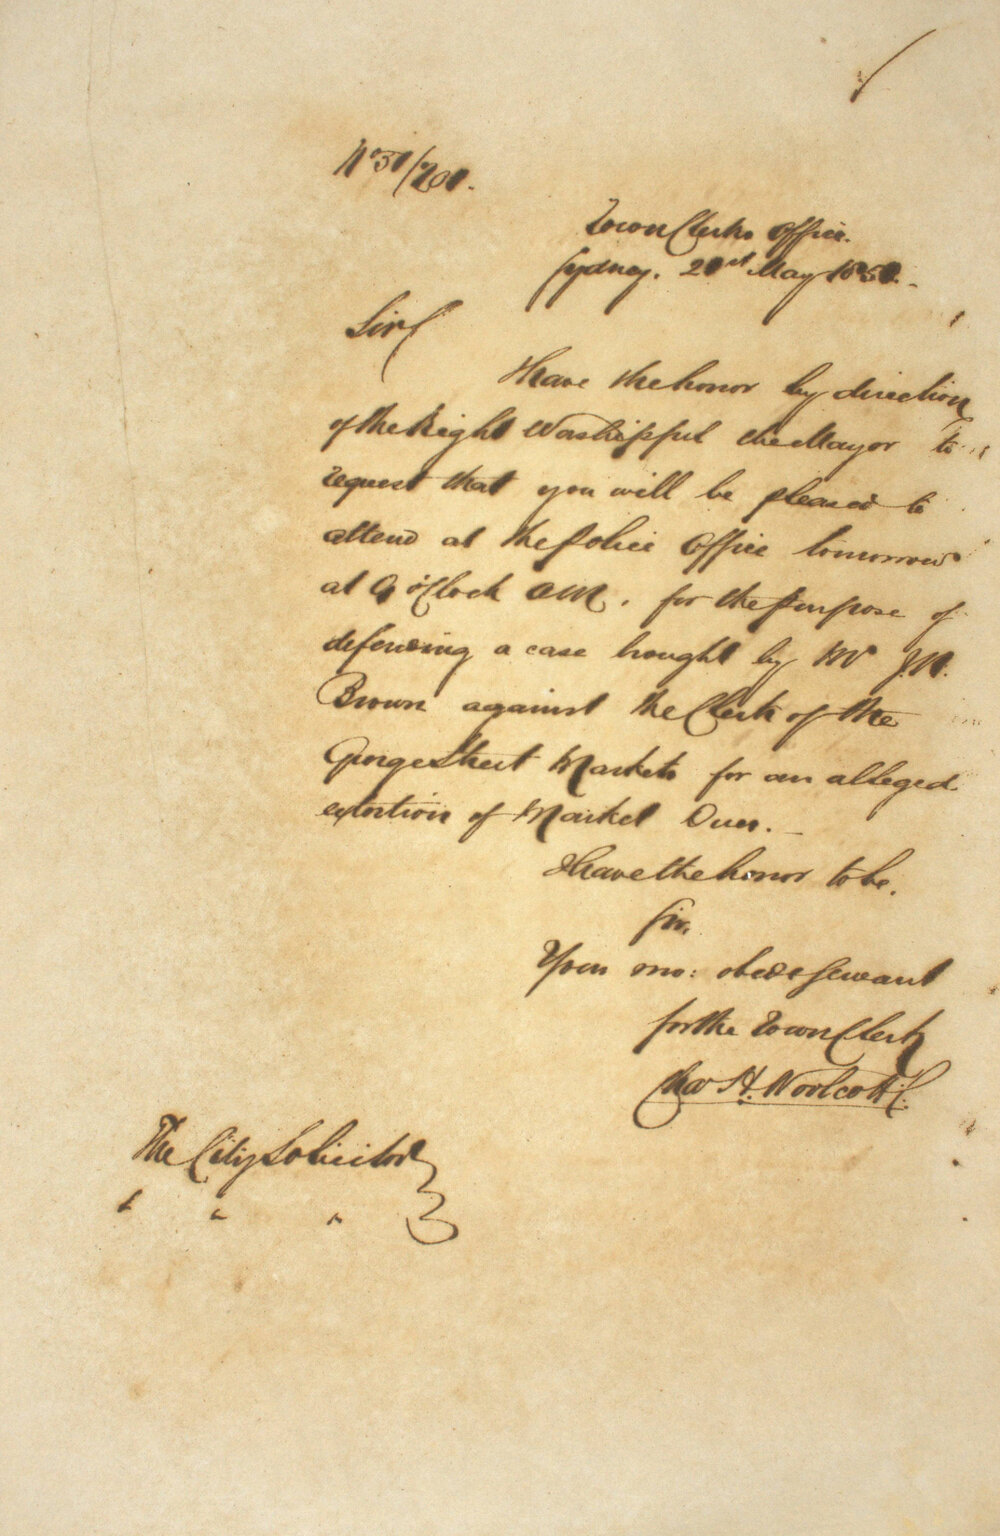 Town Clerks Office.
Sydney. 21st May 185
Sir
I Have the honor by direction
of the Right Worshipful the Mayor to
request that you will be pleased to
attend at the Police Office tomorrow
at 9 o'Clock AM. for the purpose of
defending a case brought by Mr J.M.
Brown against the Clerk of the
George Street Markets for an alleged
extortion of Market Dues. _
I Have the honor to be.
Sir.
Your mo: obedt servant
for the Town Clerk
Chas H. Woolcott
The City Solicitor
" " "